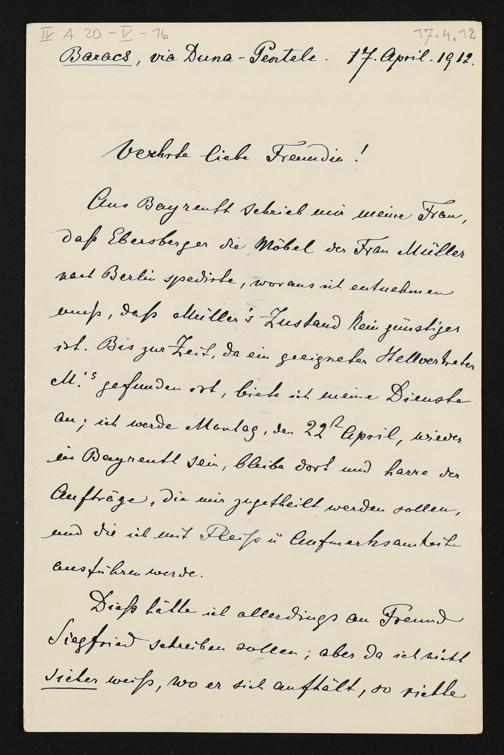 IV A 20 - V - 16
17.4.12
Baracs, via Duna-Pentele. 17. April. 1912.
Verehrte liebe Freundin!
Aus Bayreuth schrieb mir meine Frau,
daß Ebersberger die Möbel der Frau Müller
nach Berlin spedirte, woraus ich entnehmen
muß, daß Müller's Zustand kein günstiger
ist. Bis zur Zeit, da ein geeigneter Stellvertreter
M.'s gefunden ist, biete ich meine Dienste
an; ich werde Montag, den 22t April, wieder
in Bayreuth sein, bleibe dort und harre der
Aufträge, die mir zugetheilt werden sollen,
und die ich mit Fleiß u Aufmerksamkeit
ausführen werde.
Dieß hätte ich allerdings an Freund
Siegfried schreiben sollen; aber da ich nicht
sicher weiß, wo er sich aufhält, so richte